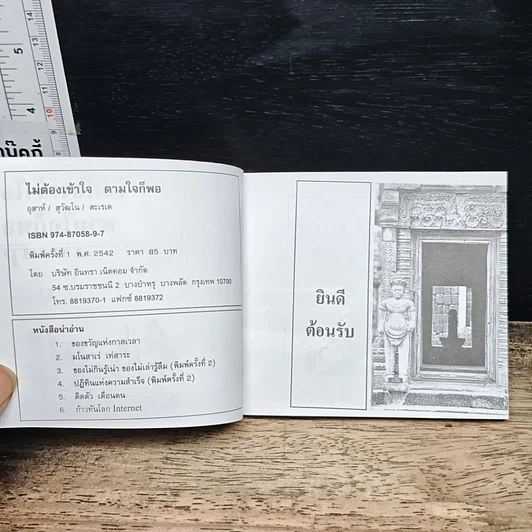 5
บุ๊คกี้
ไม่ต้องเข้าใจ ตามใจก็พอ
อุสาห์ / สุวัฒโน / สะเรเต
ISBN 974-87058-9-7
พิมพ์ครั้งที่ 1 พ.ศ. 2542 ราคา 85 บาท
โดย บริษัท อินทรา เน็ตคอม จำกัด
54 ซ.บรมราชชนนี 2 บางบำหรุ บางพลัด กรุงเทพ 10700
โทร. 8819370-1 แฟกซ์ 8819372
หนังสือน่าอ่าน
1. ของขวัญแห่งกาลเวลา
2. มโนสาเร่ เท่สาระ
3. ของไม่กินรู้เน่า ของไม่เล่ารู้ลืม (พิมพ์ครั้งที่ 2)
4. ปฏิทินแห่งความสำเร็จ (พิมพ์ครั้งที่ 2)
5. ติดตัว เตือนตน
6. ก้าวทันโลก Internet
ยินดี
ต้อนรับ